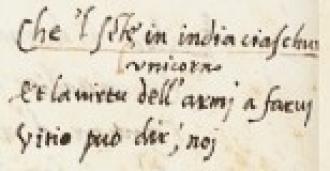 Che 'l in india ciaschun
unicorno
Et la virtu dell' armj a farvj
Vitio può dir, noj